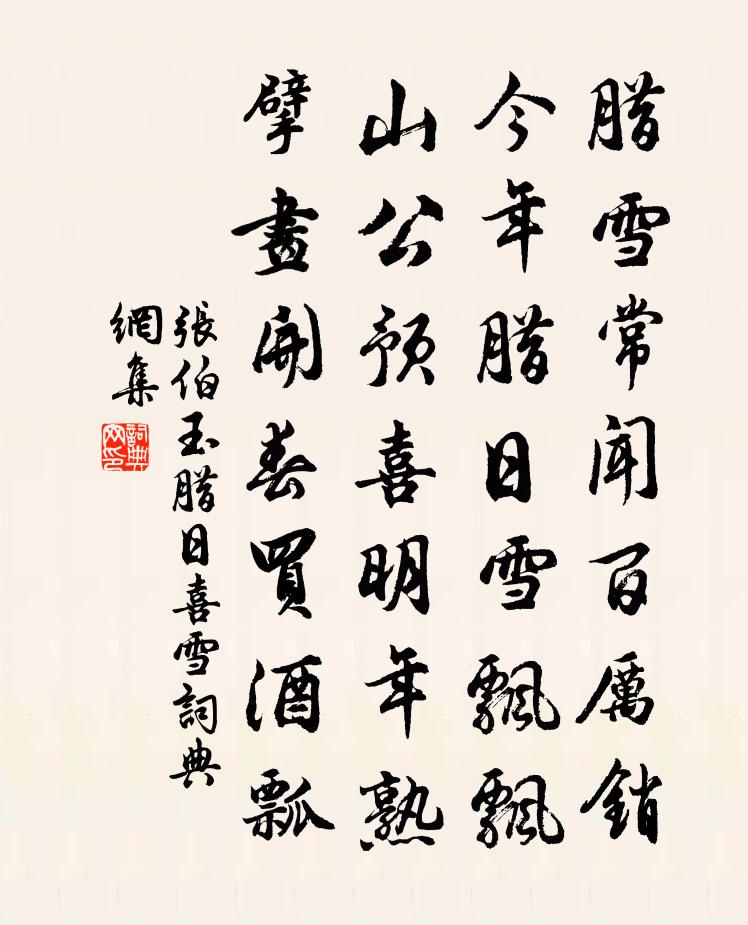 腊雪常闻百厲銷
今年腊日雪飄飄
山公預喜明年熟
擘畫開春買酒瓢
張伯玉腊日喜雪詞典
網集
詞典
网印